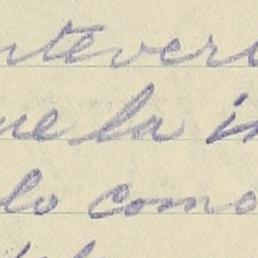 ntever
ue la in
lo como